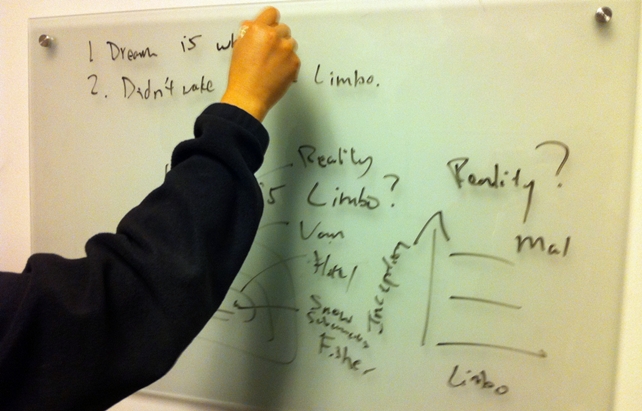 1 Dream is wh
2. Didn't wake Limbo.
Reality
is Limbo?
Van
Hotel
Snow
Fisher
Inception
Reality?
Mal
Limbo